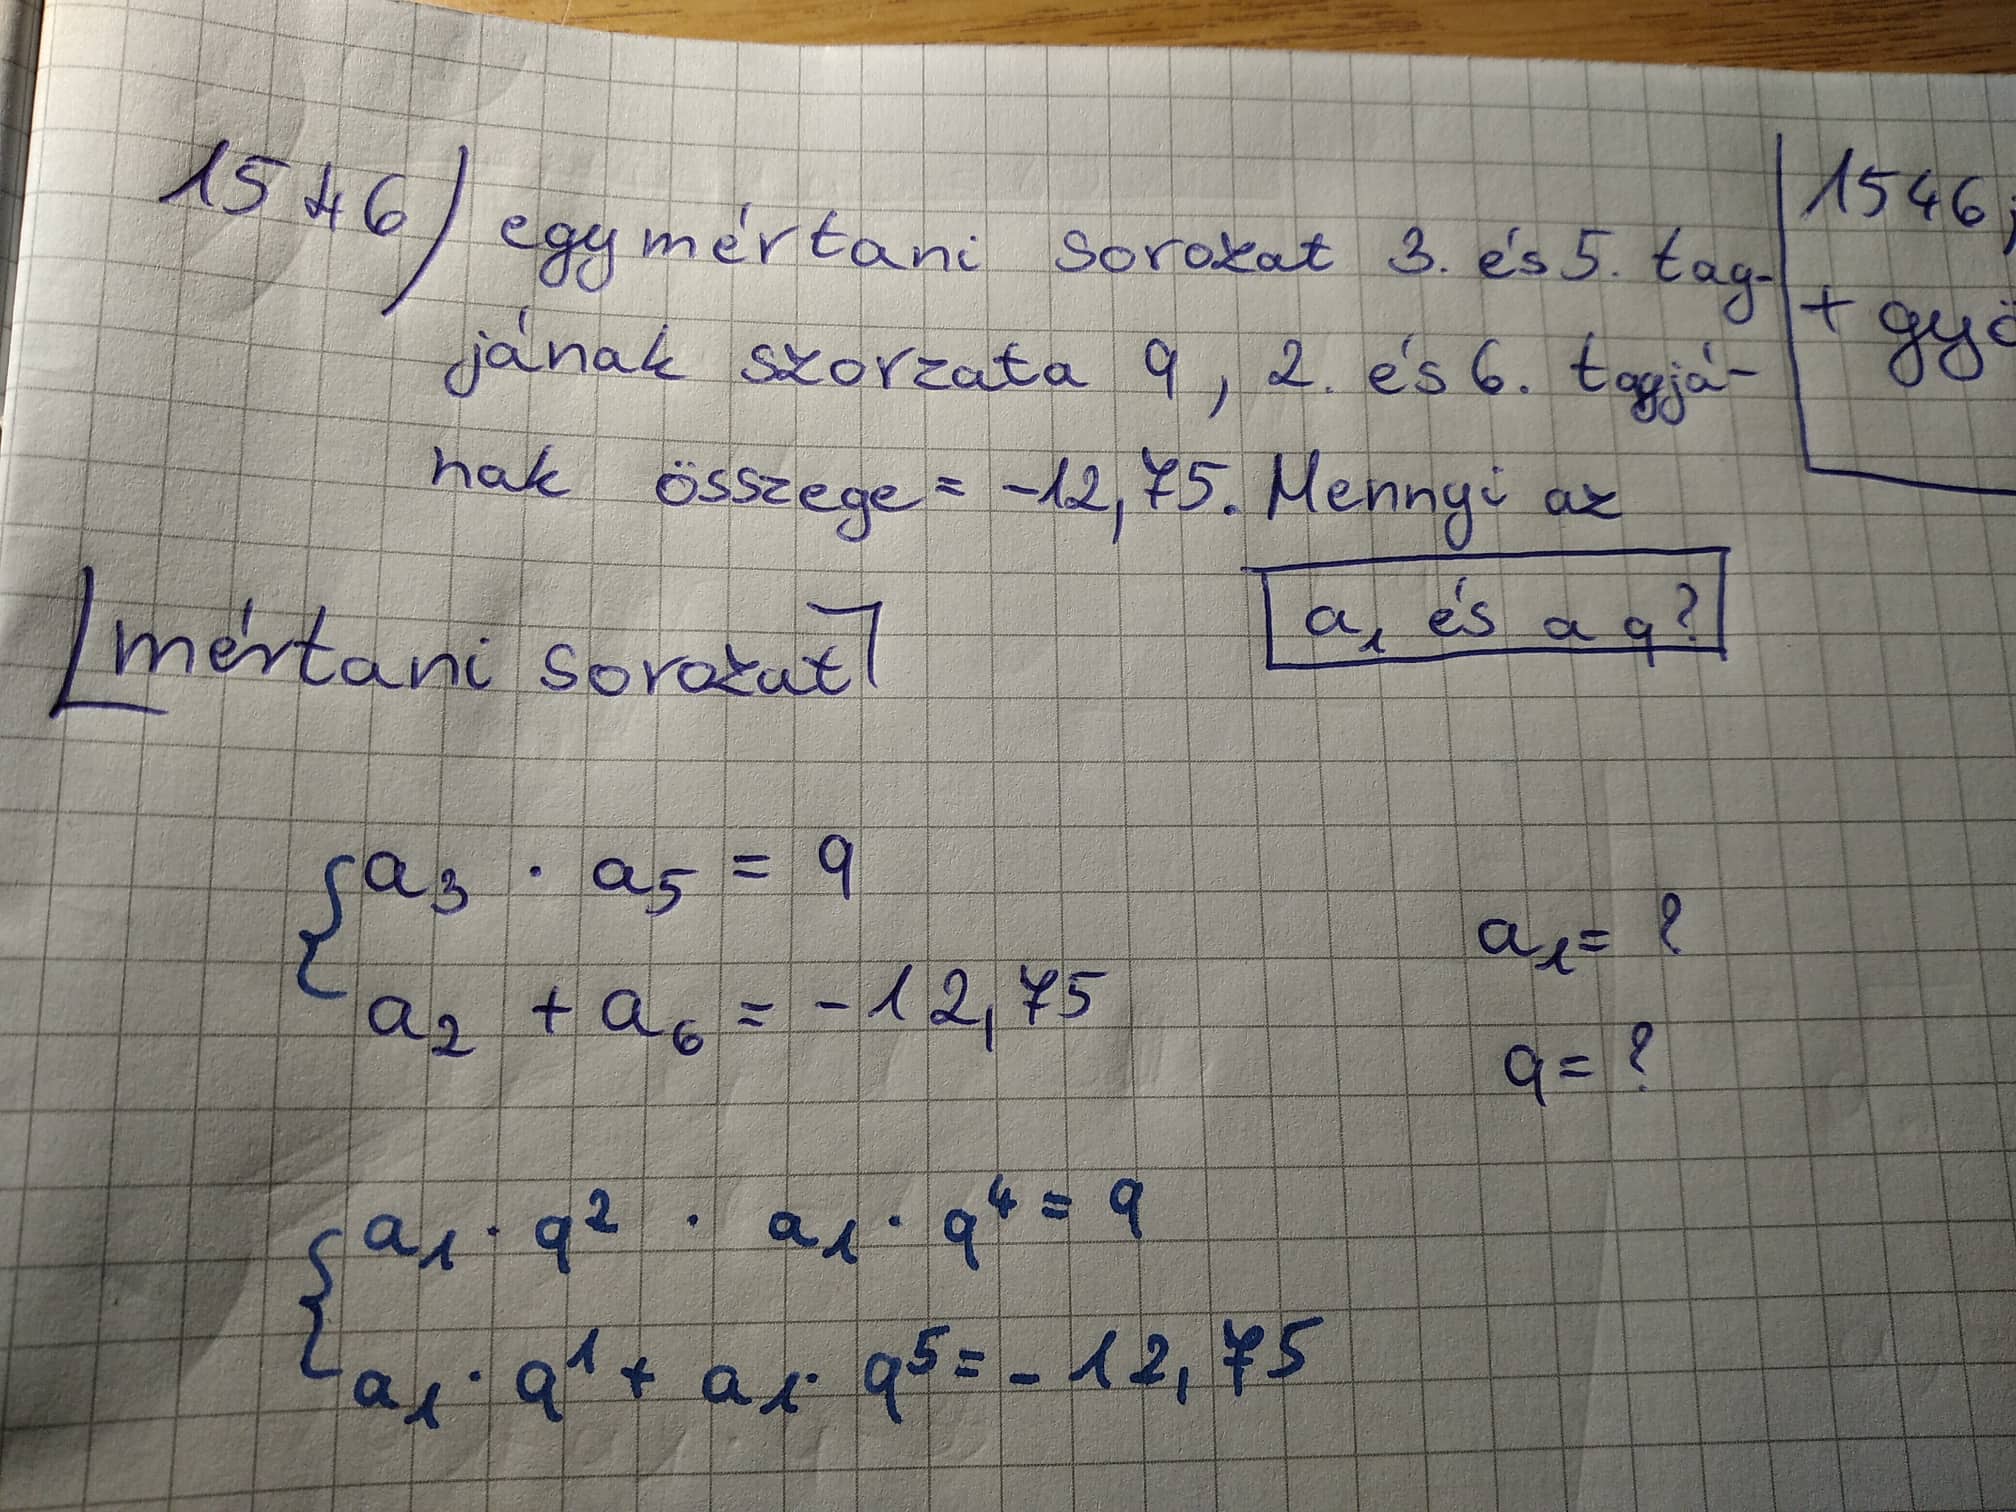 1546) egy mértani sorozat 3. és 5. tag-
jának szorzata 9, 2. és 6. tagjá-
nak összege = -12,75. Mennyi az
a₁ és a q?
1546
+ gyö
[mértani sorozat]
a₃ · a₅ = 9
a₂ + a₆ = -12,75
a₁ = ?
q = ?
a₁ · q² · a₁ · q⁴ = 9
a₁ · q¹ + a₁ · q⁵ = -12,75